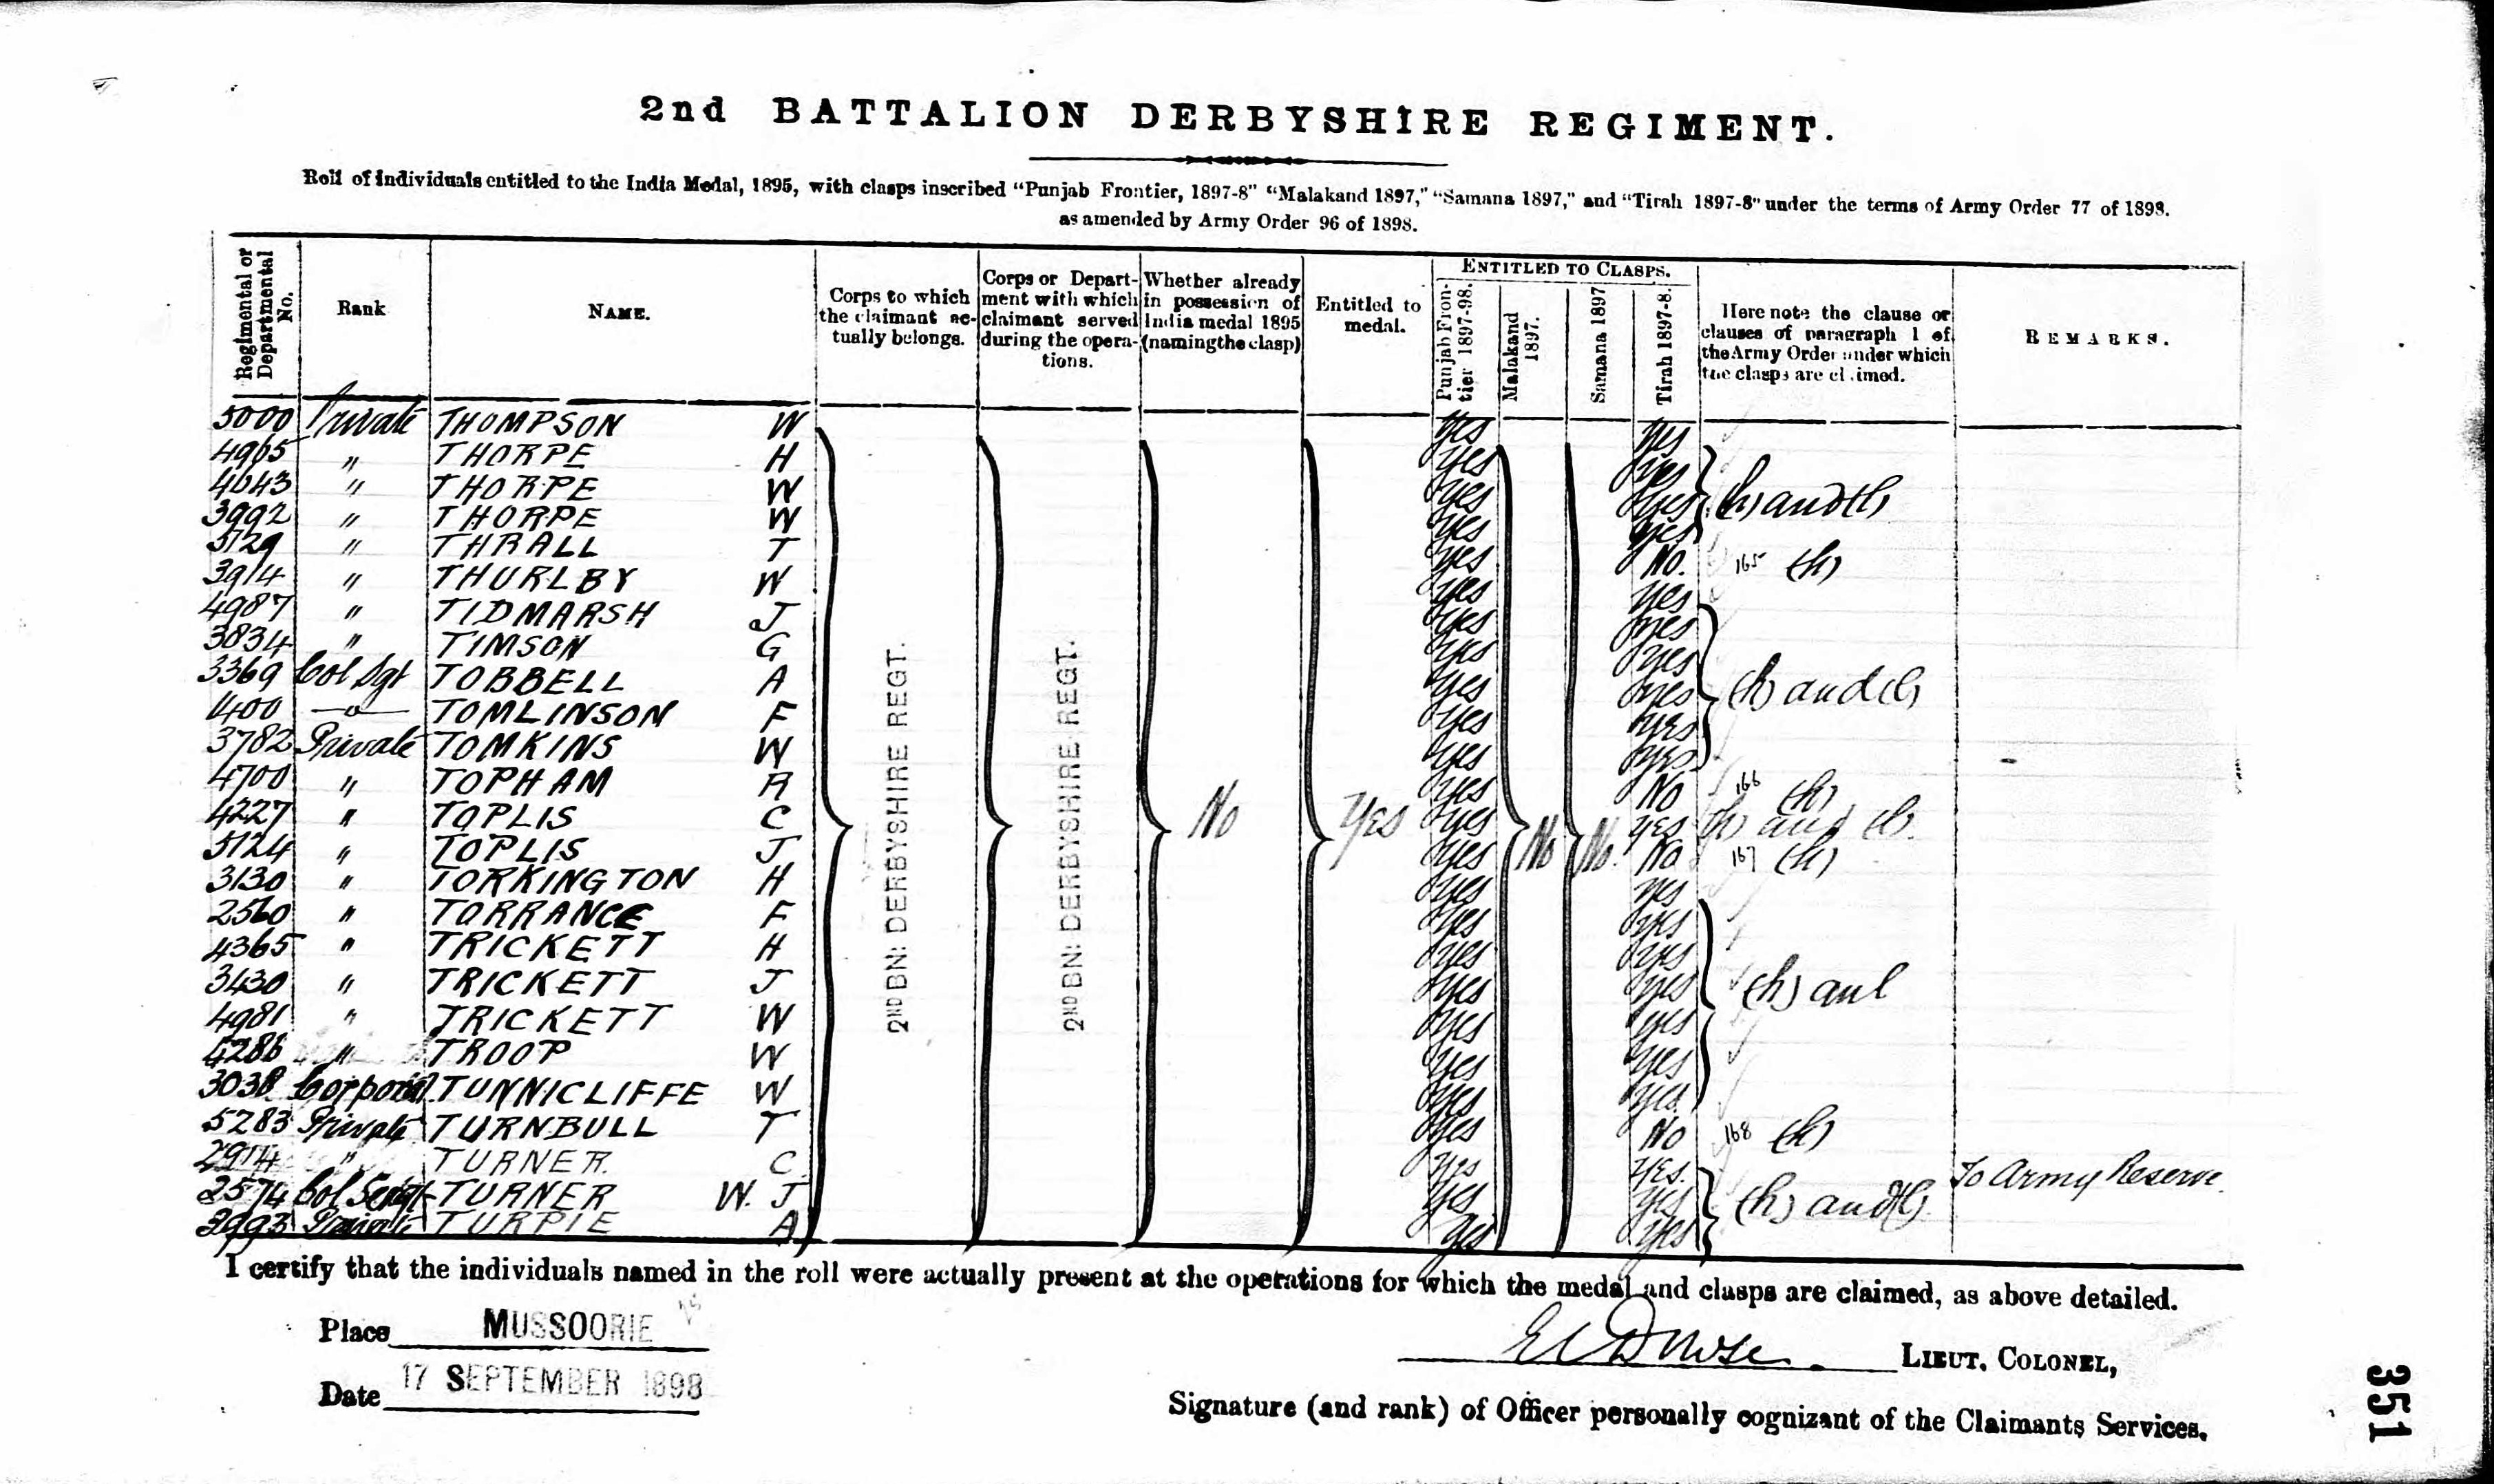 2nd BATTALION DERBYSHIRE REGIMENT.
Roll of Individuals entitled to the India Medal, 1895, with clasps inscribed "Punjab Frontier, 1897-8" "Malakand 1897," "Samana 1897," and "Tirah 1897-8" under the terms of Army Order 77 of 1898.
as amended by Army Order 96 of 1898.
Regimental or Departmental No. Rank NAME. Corps to which the claimant actually belongs. Corps or Department with which claimant served during the operations. Whether already in possession of India medal 1895 (naming the clasp) Entitled to medal. ENTITLED TO CLASPS. Punjab Frontier 1897-98. Malakand 1897. Samana 1897 Tirah 1897-8. Here note the clause or clauses of paragraph 1 of the Army Order under which the clasps are claimed. REMARKS.
5000 Private THOMPSON W Yes Yes
4965 " THORPE H Yes Yes
4643 " THORPE W Yes Yes
3992 " THORPE W Yes Yes
5129 " THRALL T Yes No. 165 (h)
3914 " THURLBY W Yes Yes
4987 " TIDMARSH J Yes Yes
3834 " TIMSON G Yes Yes
3369 Col Sgt TOBBELL A Yes Yes
1400 TOMLINSON F Yes Yes
3782 Private TOMKINS W Yes Yes
4700 " TOPHAM R Yes No 166 (h)
4227 " TOPLIS C Yes Yes (h) and
5124 " TOPLIS J Yes No 167 (h)
3130 " TORKINGTON H Yes Yes
2560 " TORRANCE F Yes Yes
4365 " TRICKETT H Yes Yes
3430 " TRICKETT J Yes Yes
4981 " TRICKETT W Yes Yes
" TROOP W Yes Yes
3038 Corporal TUNNICLIFFE W Yes Yes
5283 Private TURNBULL T Yes No 168 (h)
" TURNER C Yes Yes. To Army Reserve
2574 Col Sergt TURNER W. J Yes Yes (h) and
Private TURPIE A Yes Yes
2ND BN: DERBYSHIRE REGT.
2ND BN: DERBYSHIRE REGT.
No Yes No No.
I certify that the individuals named in the roll were actually present at the operations for which the medal and clasps are claimed, as above detailed.
Place MUSSOORIE
LIEUT. COLONEL,
Date 17 SEPTEMBER 1898
Signature (and rank) of Officer personally cognizant of the Claimants Services.
351